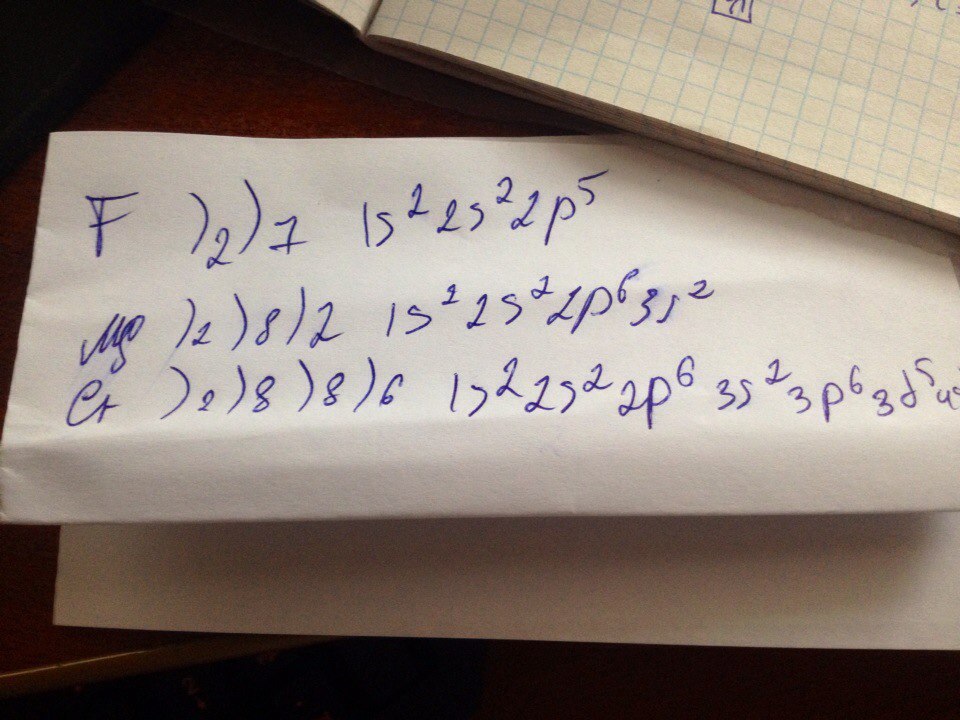 F )2)7 1s² 2s² 2p⁵
Mg )2)8)2 1s² 2s² 2p⁶ 3s²
Cr )2)8)8)6 1s² 2s² 2p⁶ 3s² 3p⁶ 3d⁵